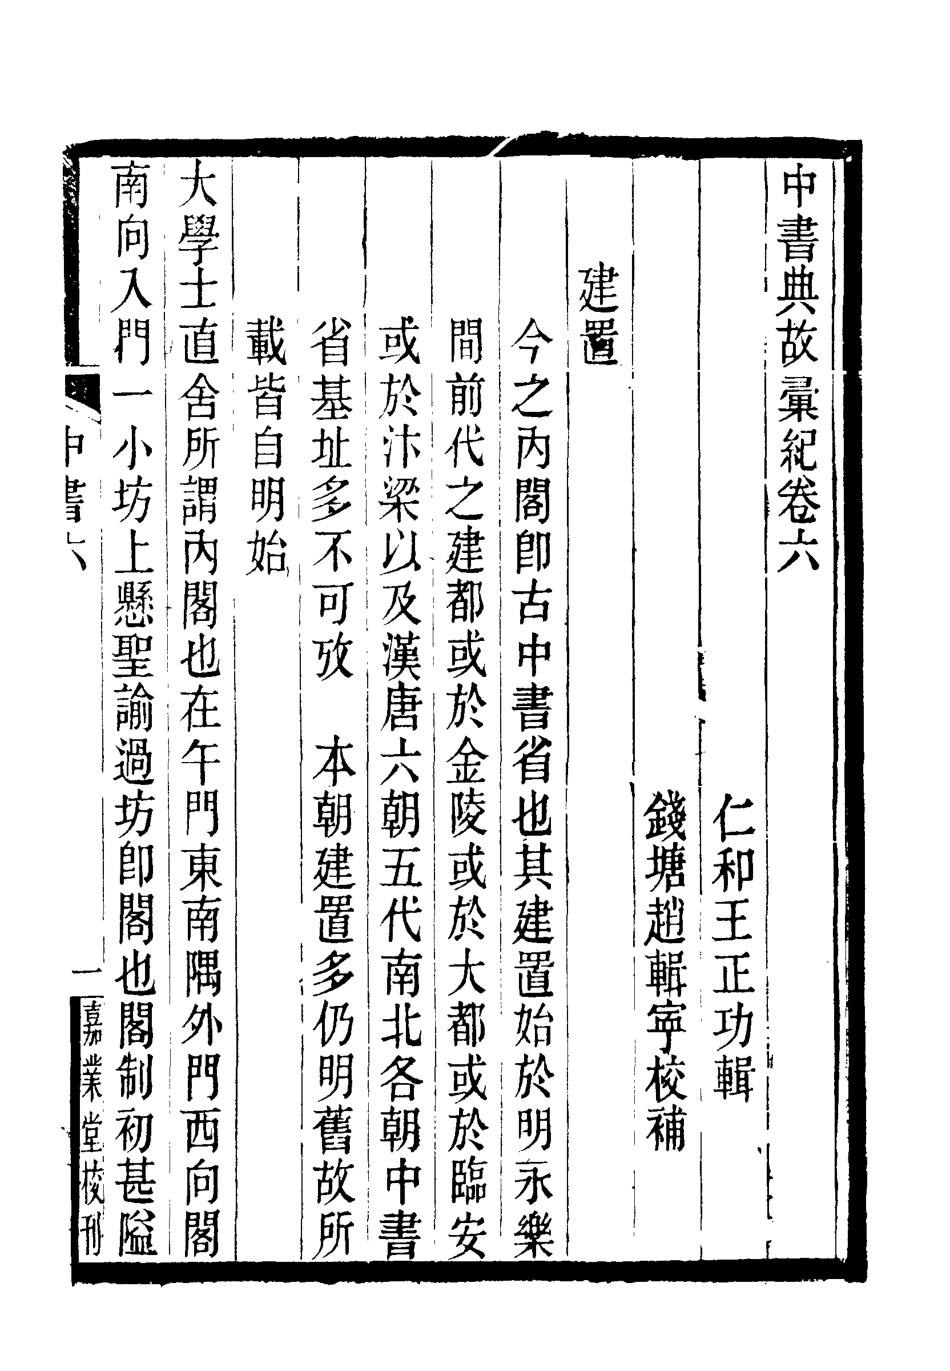 中書典故彙紀卷六
仁和王正功輯
錢塘趙輯寧校補
建置
今之內閣卽古中書省也其建置始於明永樂
間前代之建都或於金陵或於大都或於臨安
或於汴梁以及漢唐六朝五代南北各朝中書
省基址多不可攷　本朝建置多仍明舊故所
載皆自明始
大學士直舍所謂內閣也在午門東南隅外門西向閣
南向入門一小坊上懸聖諭過坊卽閣也閣制初甚隘
中書六
一
嘉業堂校刊